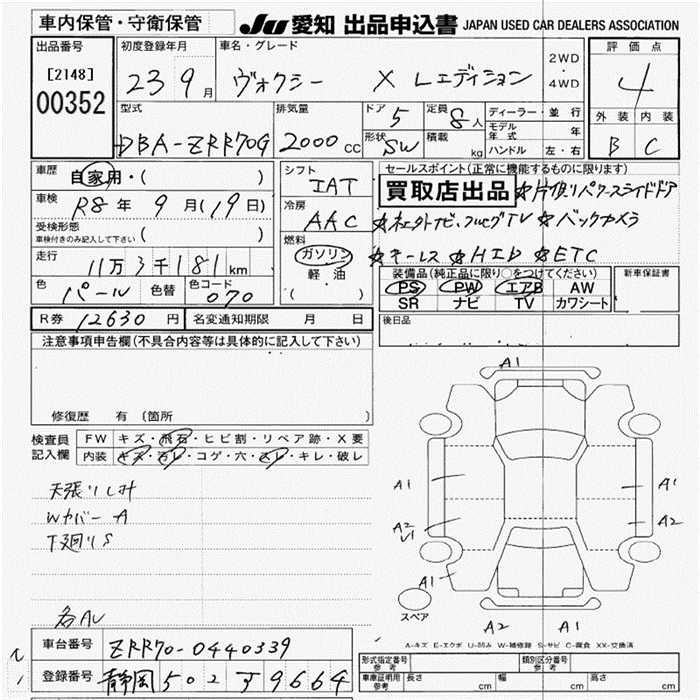 車内保管・守衛保管
JU 愛知 出品申込書 JAPAN USED CAR DEALERS ASSOCIATION
出品番号 [2148] 00352
初度登録年月 23 9月
車名・グレード ヴォクシー X Lエディション
2WD・4WD
評価点 4
外装 B 内装 C
型式 DBA-ZRR70G
排気量 2000 CC
ドア 5
定員 8人
形状 SW
積載 kg
ディーラー・並行
モデル年式 年
ハンドル 左・右
車歴 自家用・( )
車検 R8年 9月(19日)
受検形態 車検付きのみ記入して下さい ( )
走行 11万3千181km
色 パール 色替 色コード 070
シフト IAT
冷房 AAC
燃料 ガソリン 軽油 ( )
セールスポイント(正常に機能するものに限ります)
買取店出品 ☆片側パワースライドドア
☆社外ナビ・フルセグTV ☆バックカメラ
☆キーレス ☆HID ☆ETC
装備品(純正品に限り○をつけてください)
PS PW エアB AW
SR ナビ TV カワシート
新車保証書
後日品
R券 12630円 名変通知期限 月 日
注意事項申告欄(不具合内容等は具体的に記入して下さい)
修復歴 有(箇所
検査員記入欄
FW キズ・飛石・ヒビ割・リペア跡・X要
内装 キズ・汚レ・コゲ・穴・スレ・キレ・破レ
天張りしみ
Wカバー A
下廻りS
各AU
A1
A1
A1
A2
U1
A2
A1
A2
A1
スペア
A-キズ E-エクボ U-凹み W-補修跡 S-サビ C-腐食 XX-交換済
車台番号 ZRR70-0440339
登録番号 静岡 502 す 9664
型式指定番号 参考
類別区分番号 参考
車庫証明用 参考 長さ cm 幅 cm 高さ cm